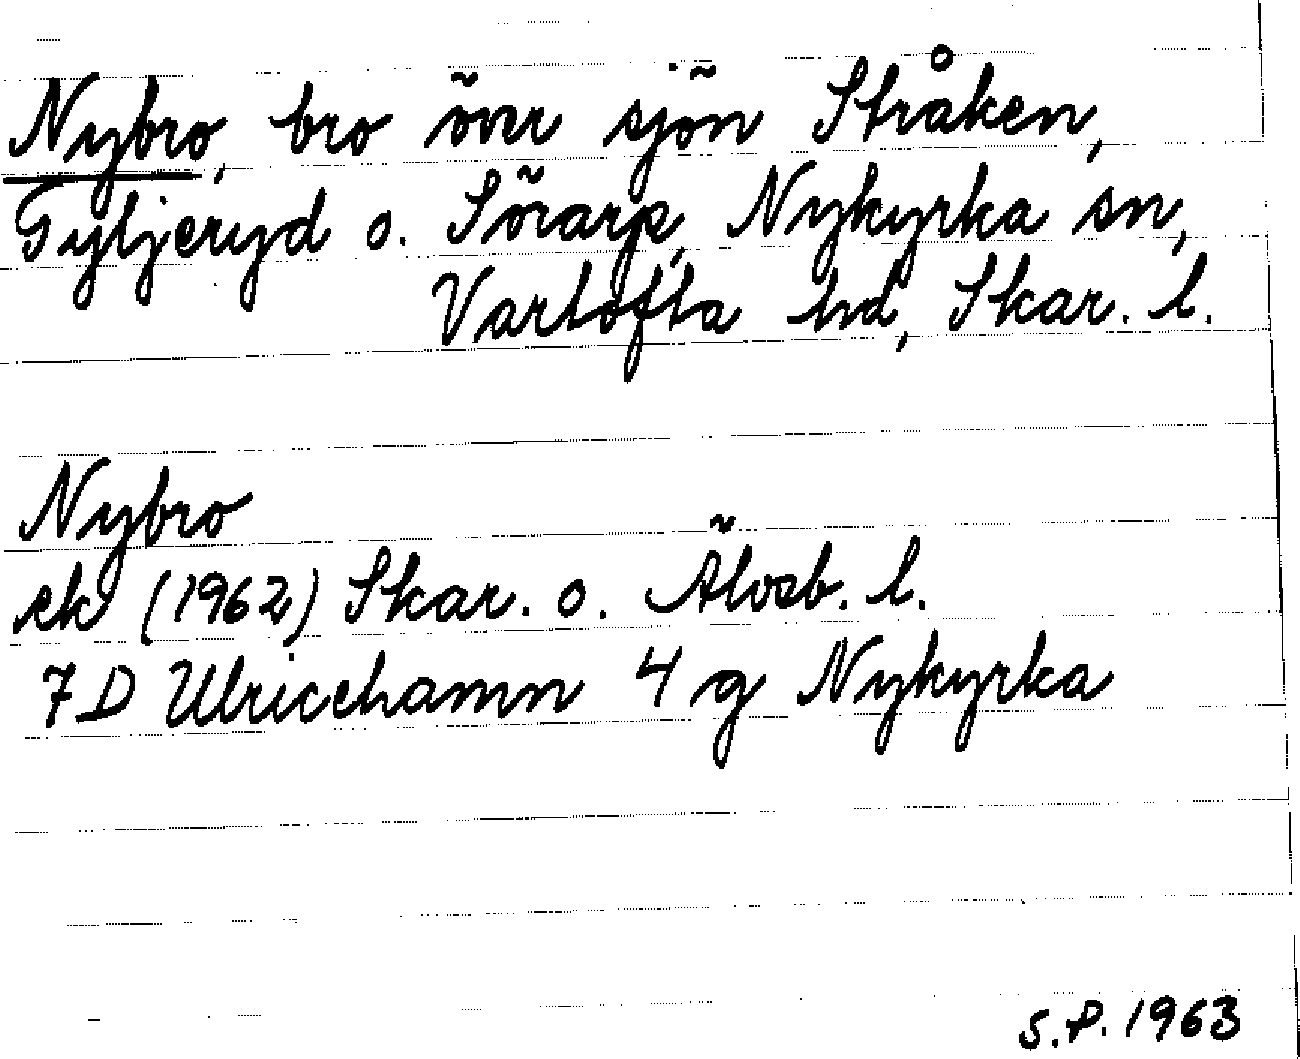 Nybro, bro över sjön Stråken,
Gyljeryd o. Sörarp, Nykyrka sn,
Vartofta hd, Skar. l.
Nybro
ek (1962) Skar. o. Älvsb. l.
7 D Ulricehamn 4 g Nykyrka
S.P. 1963